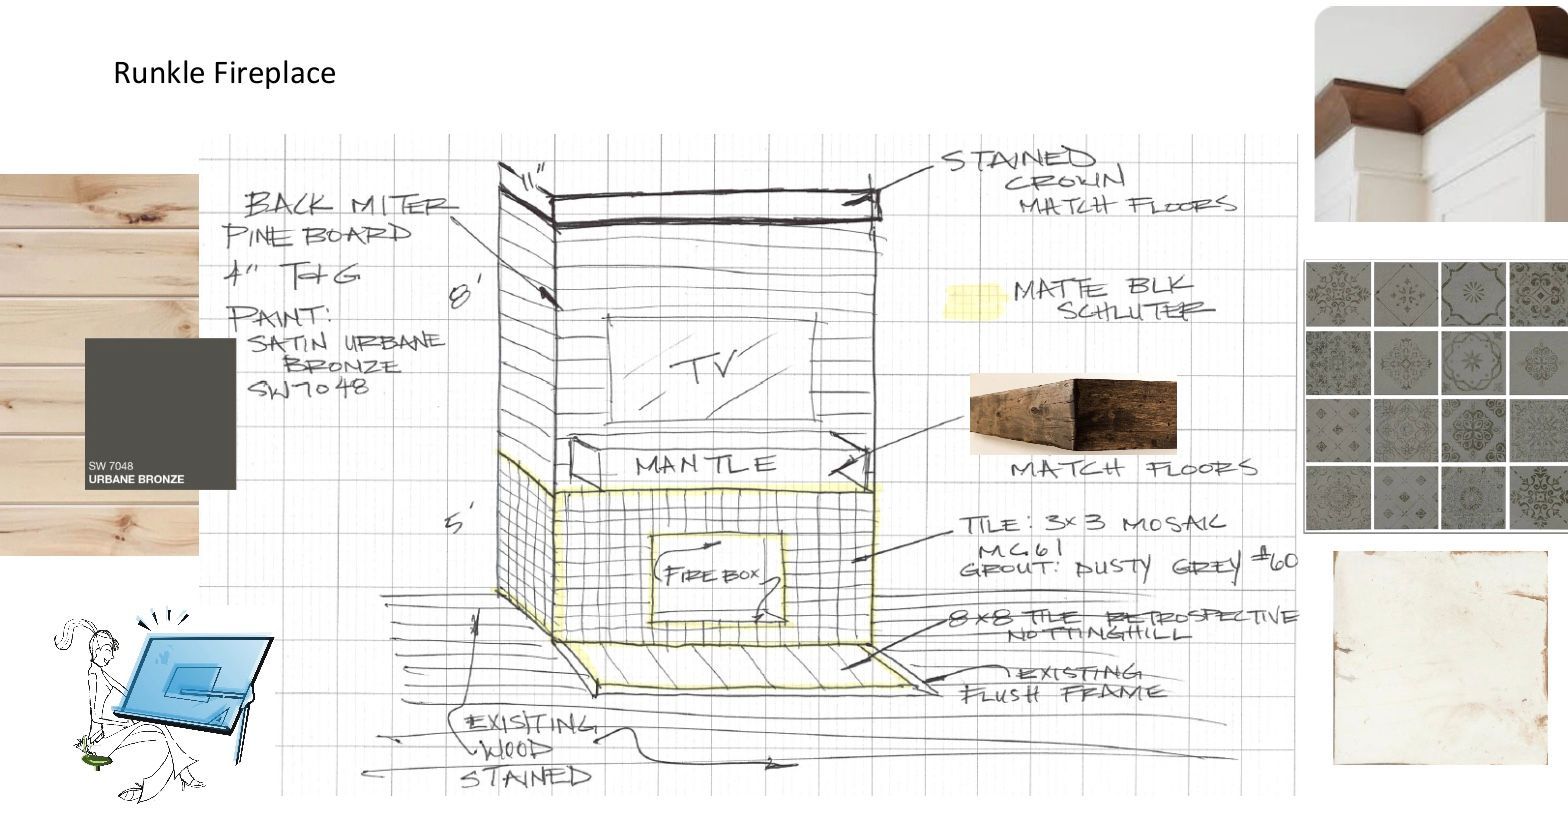 Runkle Fireplace
BACK MITER
PINE BOARD
4" T&G
PAINT:
SATIN URBANE
BRONZE
SW7048
SW 7048
URBANE BRONZE
11"
8'
5'
TV
MANTLE
FIREBOX
STAINED
CROWN
MATCH FLOORS
MATTE BLK
SCHLUTER
MATCH FLOORS
TILE: 3x3 MOSAIC
MC61
GROUT: DUSTY GREY #60
8x8 TILE RETROSPECTIVE
NOTTINGHILL
EXISTING
FLUSH FRAME
EXISITING
WOOD
STAINED